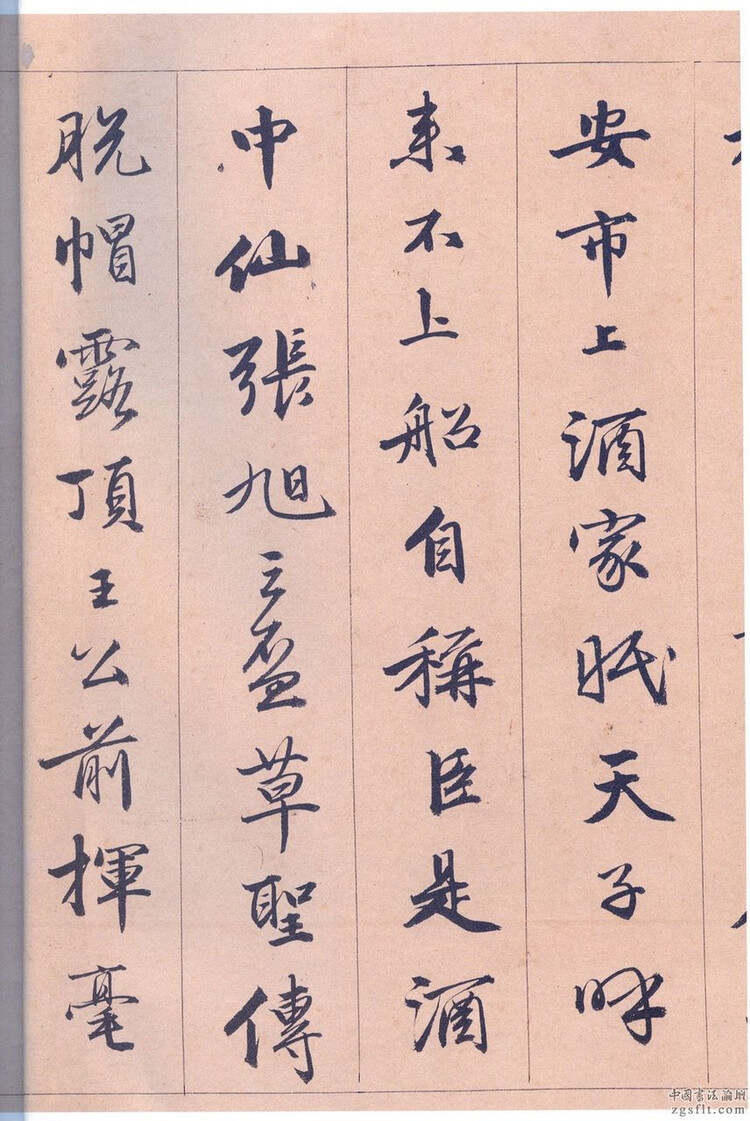 安市上酒家眠天子呼
来不上船自稱臣是酒
中仙張旭三盃草聖傳
脱帽露頂王公前揮毫
中國書法論壇
zgsflt.com